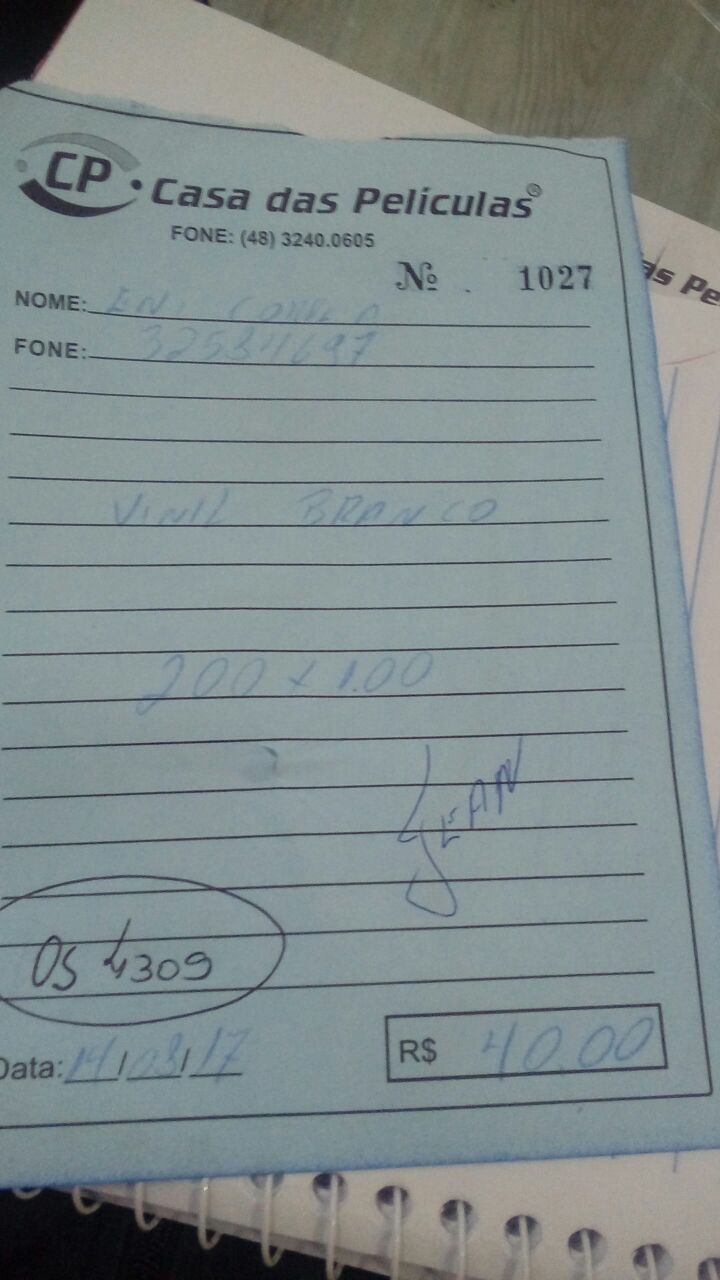 CP Casa das Películas®
FONE: (48) 3240.0605
Nº 1027
NOME: ENI CORREA
FONE: 32534697
VINIL BRANCO
200 x 1.00
JEAN
OS 4309
Data: 14/03/17
R$ 40.00
as Pe